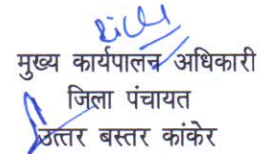 मुख्य कार्यपालन अधिकारी
जिला पंचायत
उत्तर बस्तर कांकेर